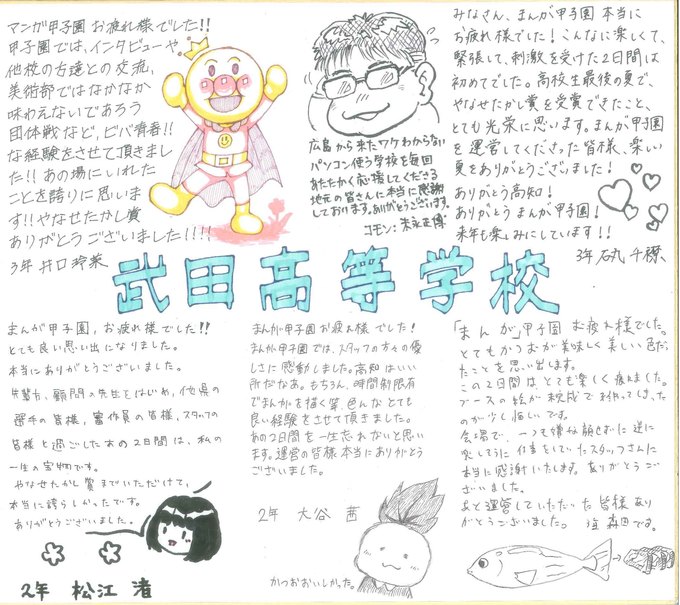 マンガ甲子園 お疲れ様でした!!
甲子園では、インタビューや
他校の方達との交流、
美術部ではなかなか
味わえないであろう
団体戦など、ビバ青春!!
な経験をさせて頂きまし
た!! あの場にいれた
ことを誇りに思いま
す!! やなせたかし賞
ありがとうございました!!!!
3年 井口
広島から来たワケわからない
パソコン使う学校を毎回
あたたかく応援してくださる
地元の皆さんに本当に感謝
しております。ありがとうございます。
コモン:末永正博
みなさん、まんが甲子園 本当に
お疲れ様でした!こんなに楽しくて、
緊張して、刺激を受けた2日間は
初めてでした。高校生最後の夏で、
やなせたかし賞を受賞できたこと、
とても光栄に思います。まんが甲子園
を運営してくださった皆様、楽しい
夏をありがとうございました!
ありがとう高知!
ありがとう まんが甲子園!
来年も楽しみにしています!!
3年 石丸 千
武田高等学校
まんが甲子園、お疲れ様でした!!
とても良い思い出になりました。
本当にありがとうございました。
先輩方、顧問の先生をはじめ、他県の
選手の皆様、審査員の皆様、スタッフの
皆様と過ごしたあの2日間は、私の
一生の宝物です。
やなせたかし賞までいただけて、
本当に誇らしかったです。
ありがとうございました。
2年 松江 渚
まんが甲子園お疲れ様でした!
まんが甲子園では、スタッフの方々の優
しさに感動しました。高知はいい
所だなあ。もちろん、時間制限有
でまんがを描く等、色んなとても
良い経験をさせて頂きました。
あの2日間を一生忘れないと思い
ます。運営の皆様本当にありがとう
ございました。
2年 大谷 茜
かつおおいしかった。
「まんが」甲子園 お疲れ様でした。
とてもかつおが美味しく美しい色だっ
たことを思い出します。
この2日間はとても楽しく疲れました。
ブースの絵が未完成で終わってしまった
のが少し悔しいです。
会場で、一つも嫌な顔せずに逆に
楽しそうに仕事をしていたスタッフさんに
本当に感謝いたします。ありがとうご
ざいました。
あと運営していただいた皆様あり
がとうございました。 森田です。